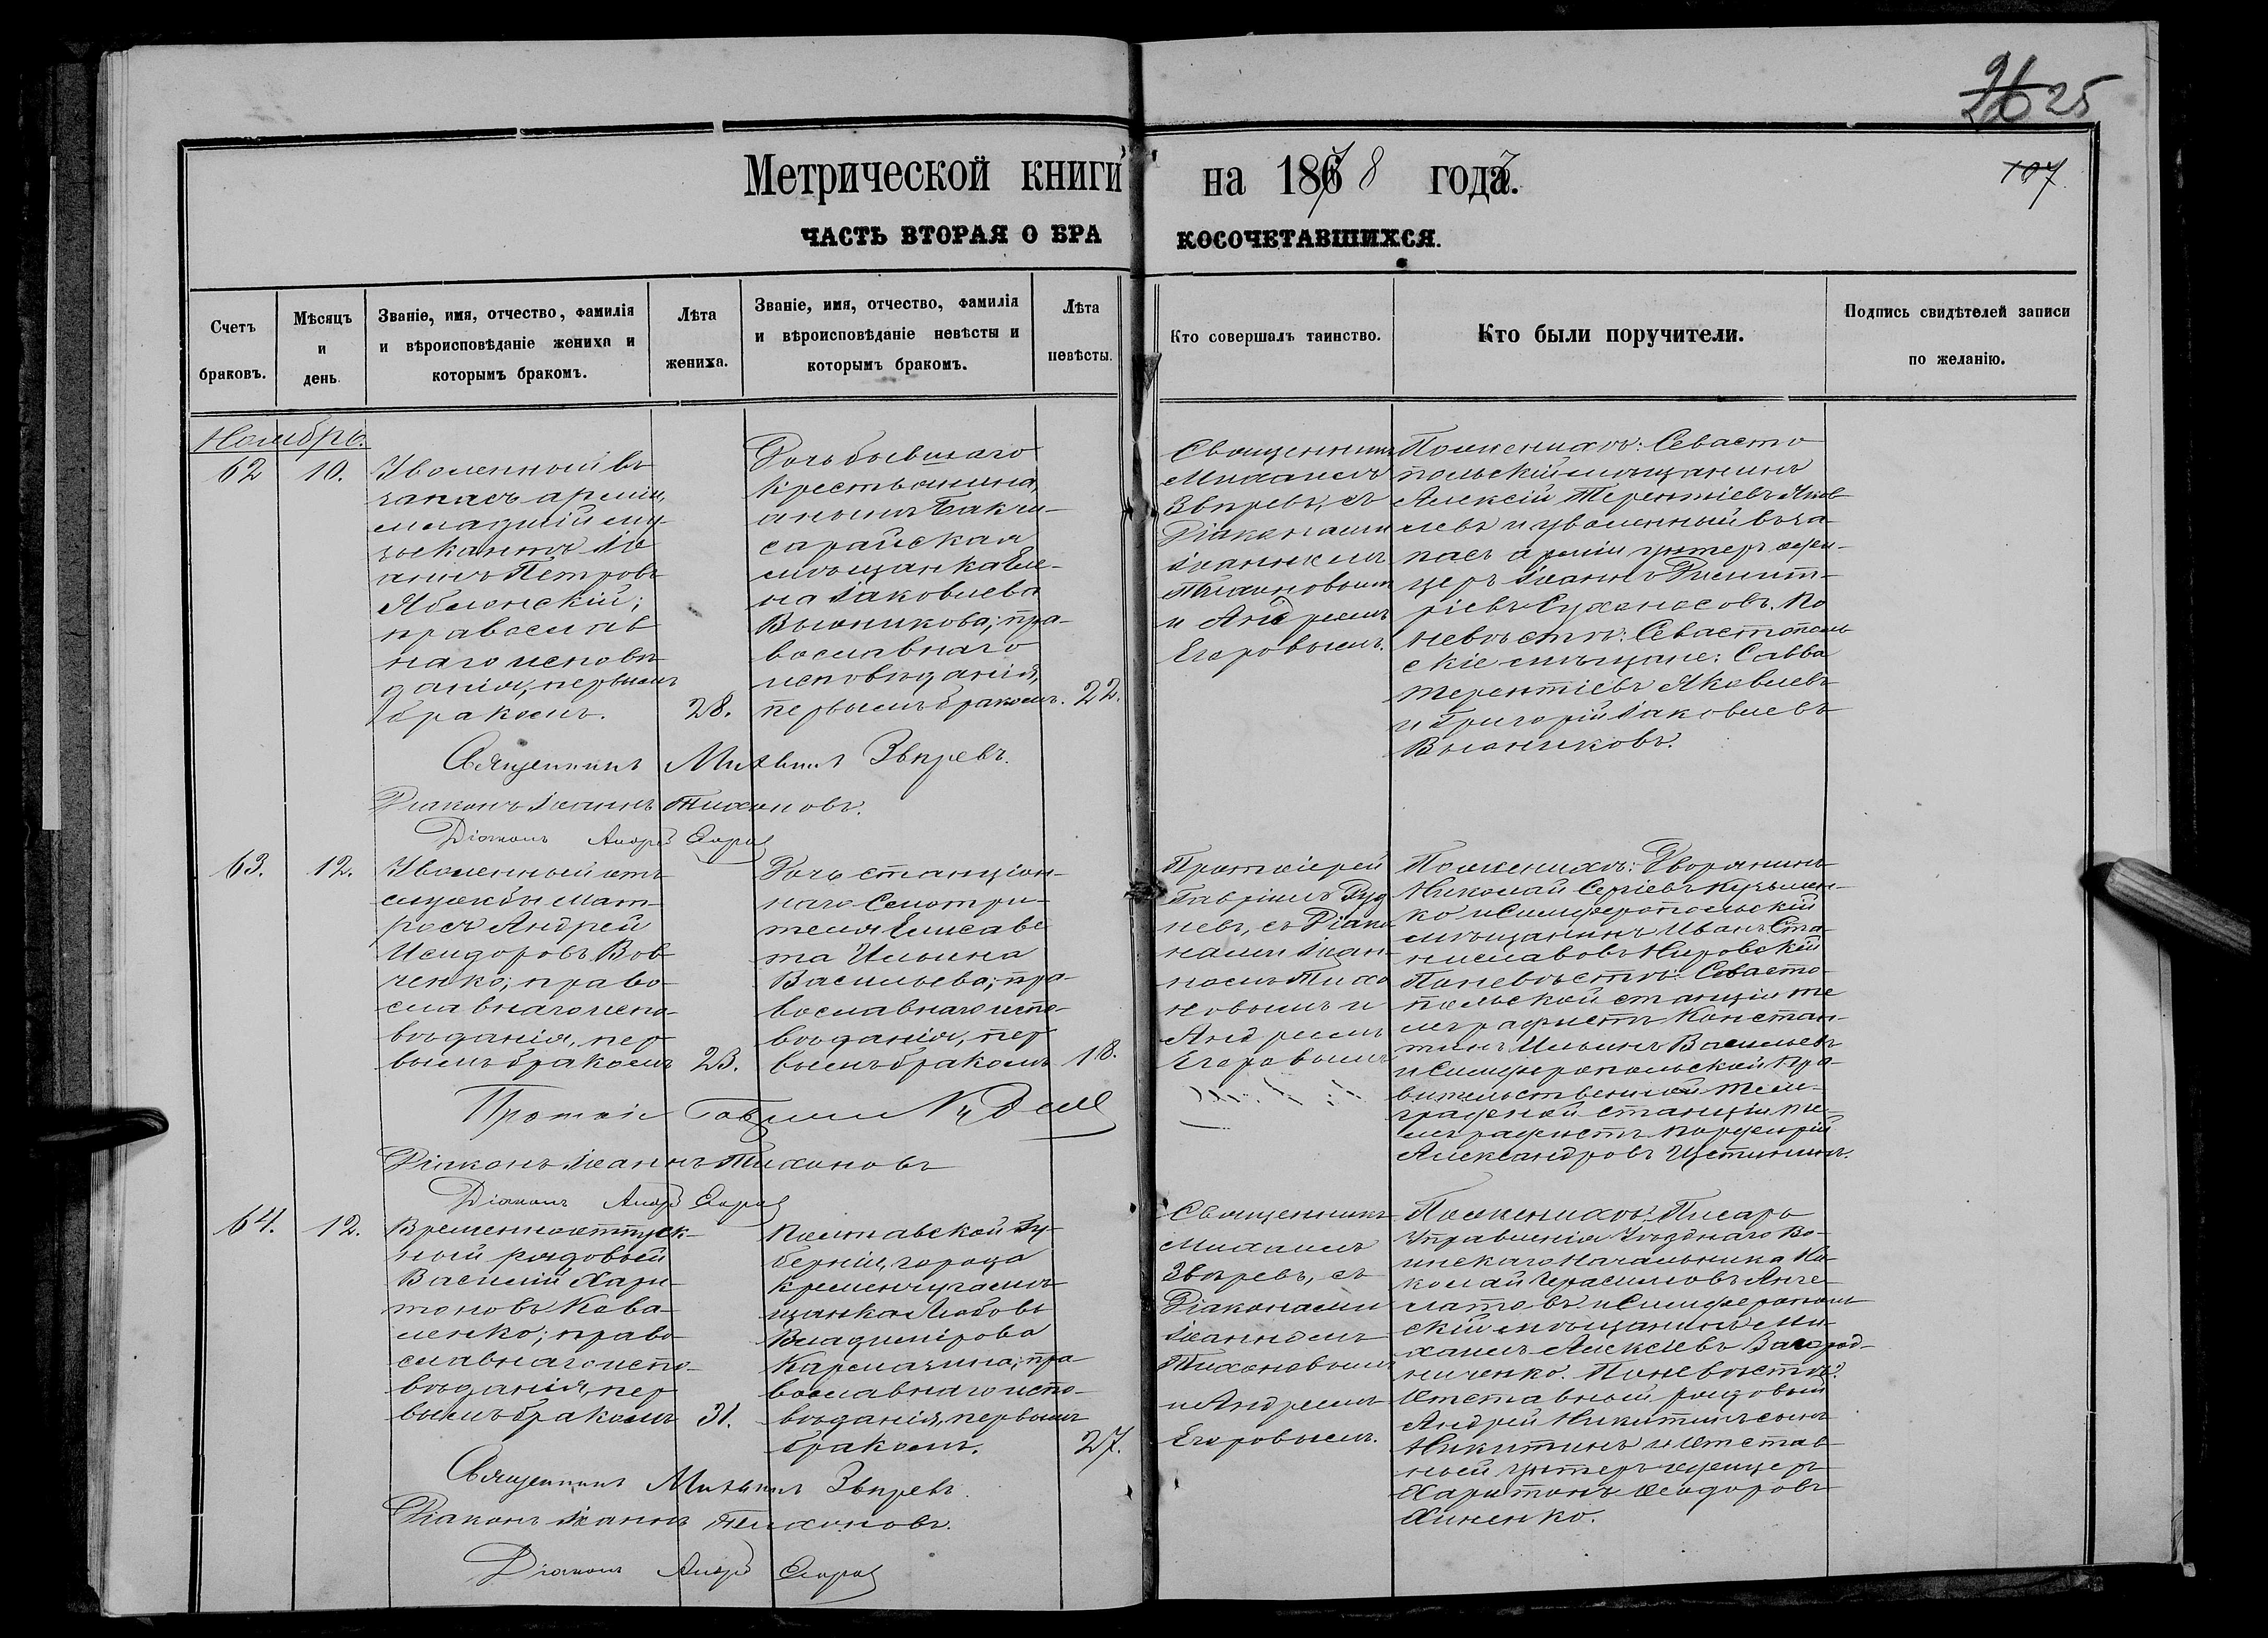 25
107
Метрической книги на 1878 года.
ЧАСТЬ ВТОРАЯ О БРАКОСОЧЕТАВШИХСЯ.
Счетъ браковъ.
Мѣсяцъ и день.
Званіе, имя, отчество, фамилія
и вѣроисповѣданіе жениха и
которымъ бракомъ.
Лѣта жениха.
Званіе, имя, отчество, фамилія
и вѣроисповѣданіе невѣсты и
которымъ бракомъ.
Лѣта невѣсты.
Кто совершалъ таинство.
Кто были поручители.
Подпись свидѣтелей записи
по желанію.
Ноябрь.
62
10.
Уволенный въ
запасъ арміи,
младшій му-
зыкантъ Іо
аннъ Петровъ
Яблонскій;
православ
наго исповѣ
данія, первымъ
бракомъ.
28.
Дочь бывшаго
крестьянина,
а нынѣ Бахчи-
сарайская
мѣщанка Еле-
на Іаковлева
Вьюникова; пра-
вославнаго
исповѣданія,
первымъ бракомъ.
22.
Священникъ
Михаилъ
Звѣревъ, съ
Діаконами
Іоанномъ
Тихоновымъ
и Андреемъ
Егоровымъ.
По женихѣ: Севасто
польскій мѣщанинъ
Алексій Терентіевъ Яков-
левъ и уволенный въ за-
пасъ арміи унтеръ офи-
церъ Іоаннъ Димит-
ріевъ Сухоносовъ. По
невѣстѣ: Севастополь
скіе мѣщане: Савва
Терентіевъ Яковлевъ
и Григорій Іаковлевъ
Вьюниковъ.
Священникъ Михаилъ Звѣревъ.
Діаконъ Іоаннъ Тихоновъ.
Діаконъ Андрей Егоровъ
63.
12.
Уволенный отъ
службы Мат-
росъ Андрей
Исидоровъ Вов
ченко; право-
славнаго испо-
вѣданія, пер
вымъ бракомъ
23.
Дочь станціон-
наго Смотри-
теля Елисаве
та Ильина
Васильева; пра-
вославнаго испо-
вѣданія, пер
вымъ бракомъ
18.
Протоіерей
Гавріилъ Руд
невъ, съ Діако
нами Іоан-
номъ Тихо
новымъ и
Андреемъ
Егоровымъ
По женихѣ: Дворянинъ
Николай Сергіевъ Кузьмен-
ко и Симферопольскій
мѣщанинъ Иванъ Ста-
ниславовъ
По невѣстѣ: Севасто-
польской станціи те
леграфистъ Констан-
тинъ Ильинъ Васильевъ
и Симферопольской Пра-
вительственной Теле-
графной станціи те-
леграфистъ Порфирій
Александровъ Устининъ.
Протоіе Гавріилъ Руднев
Діаконъ Іоаннъ Тихоновъ
Діаконъ Андрей Егоровъ
64.
12.
Временно отпуск-
ный рядовый
Василій Хари-
тоновъ Кова-
ленко; право-
славнаго испо-
вѣданія, пер
вымъ бракомъ
31.
Полтавской Гу-
берніи, города
Кременчуга мѣ
щанка Любовь
Владимірова
Кармазина; пра-
вославнаго испо-
вѣданія, первымъ
бракомъ.
27.
Священникъ
Михаилъ
Звѣревъ, съ
Діаконами
Іоанномъ
Тихоновымъ
и Андреемъ
Егоровымъ.
По женихѣ: Писарь
Управленія Уѣзднаго Во-
инскаго Начальника Ни-
колай Герасимовъ Анче-
латовъ и Симферополь
скій мѣщанинъ Ми-
хаилъ Алексіевъ Загород-
ниченко. По невѣстѣ:
Отставный рядовый
Андрей Никитинъ сынъ
Никитинъ и Отстав-
ной унтеръ офицеръ
Харитонъ Ѳеодоровъ
Хиненко.
Священникъ Михаилъ Звѣревъ.
Діаконъ Іоаннъ Тихоновъ.
Діаконъ Андрей Егоровъ